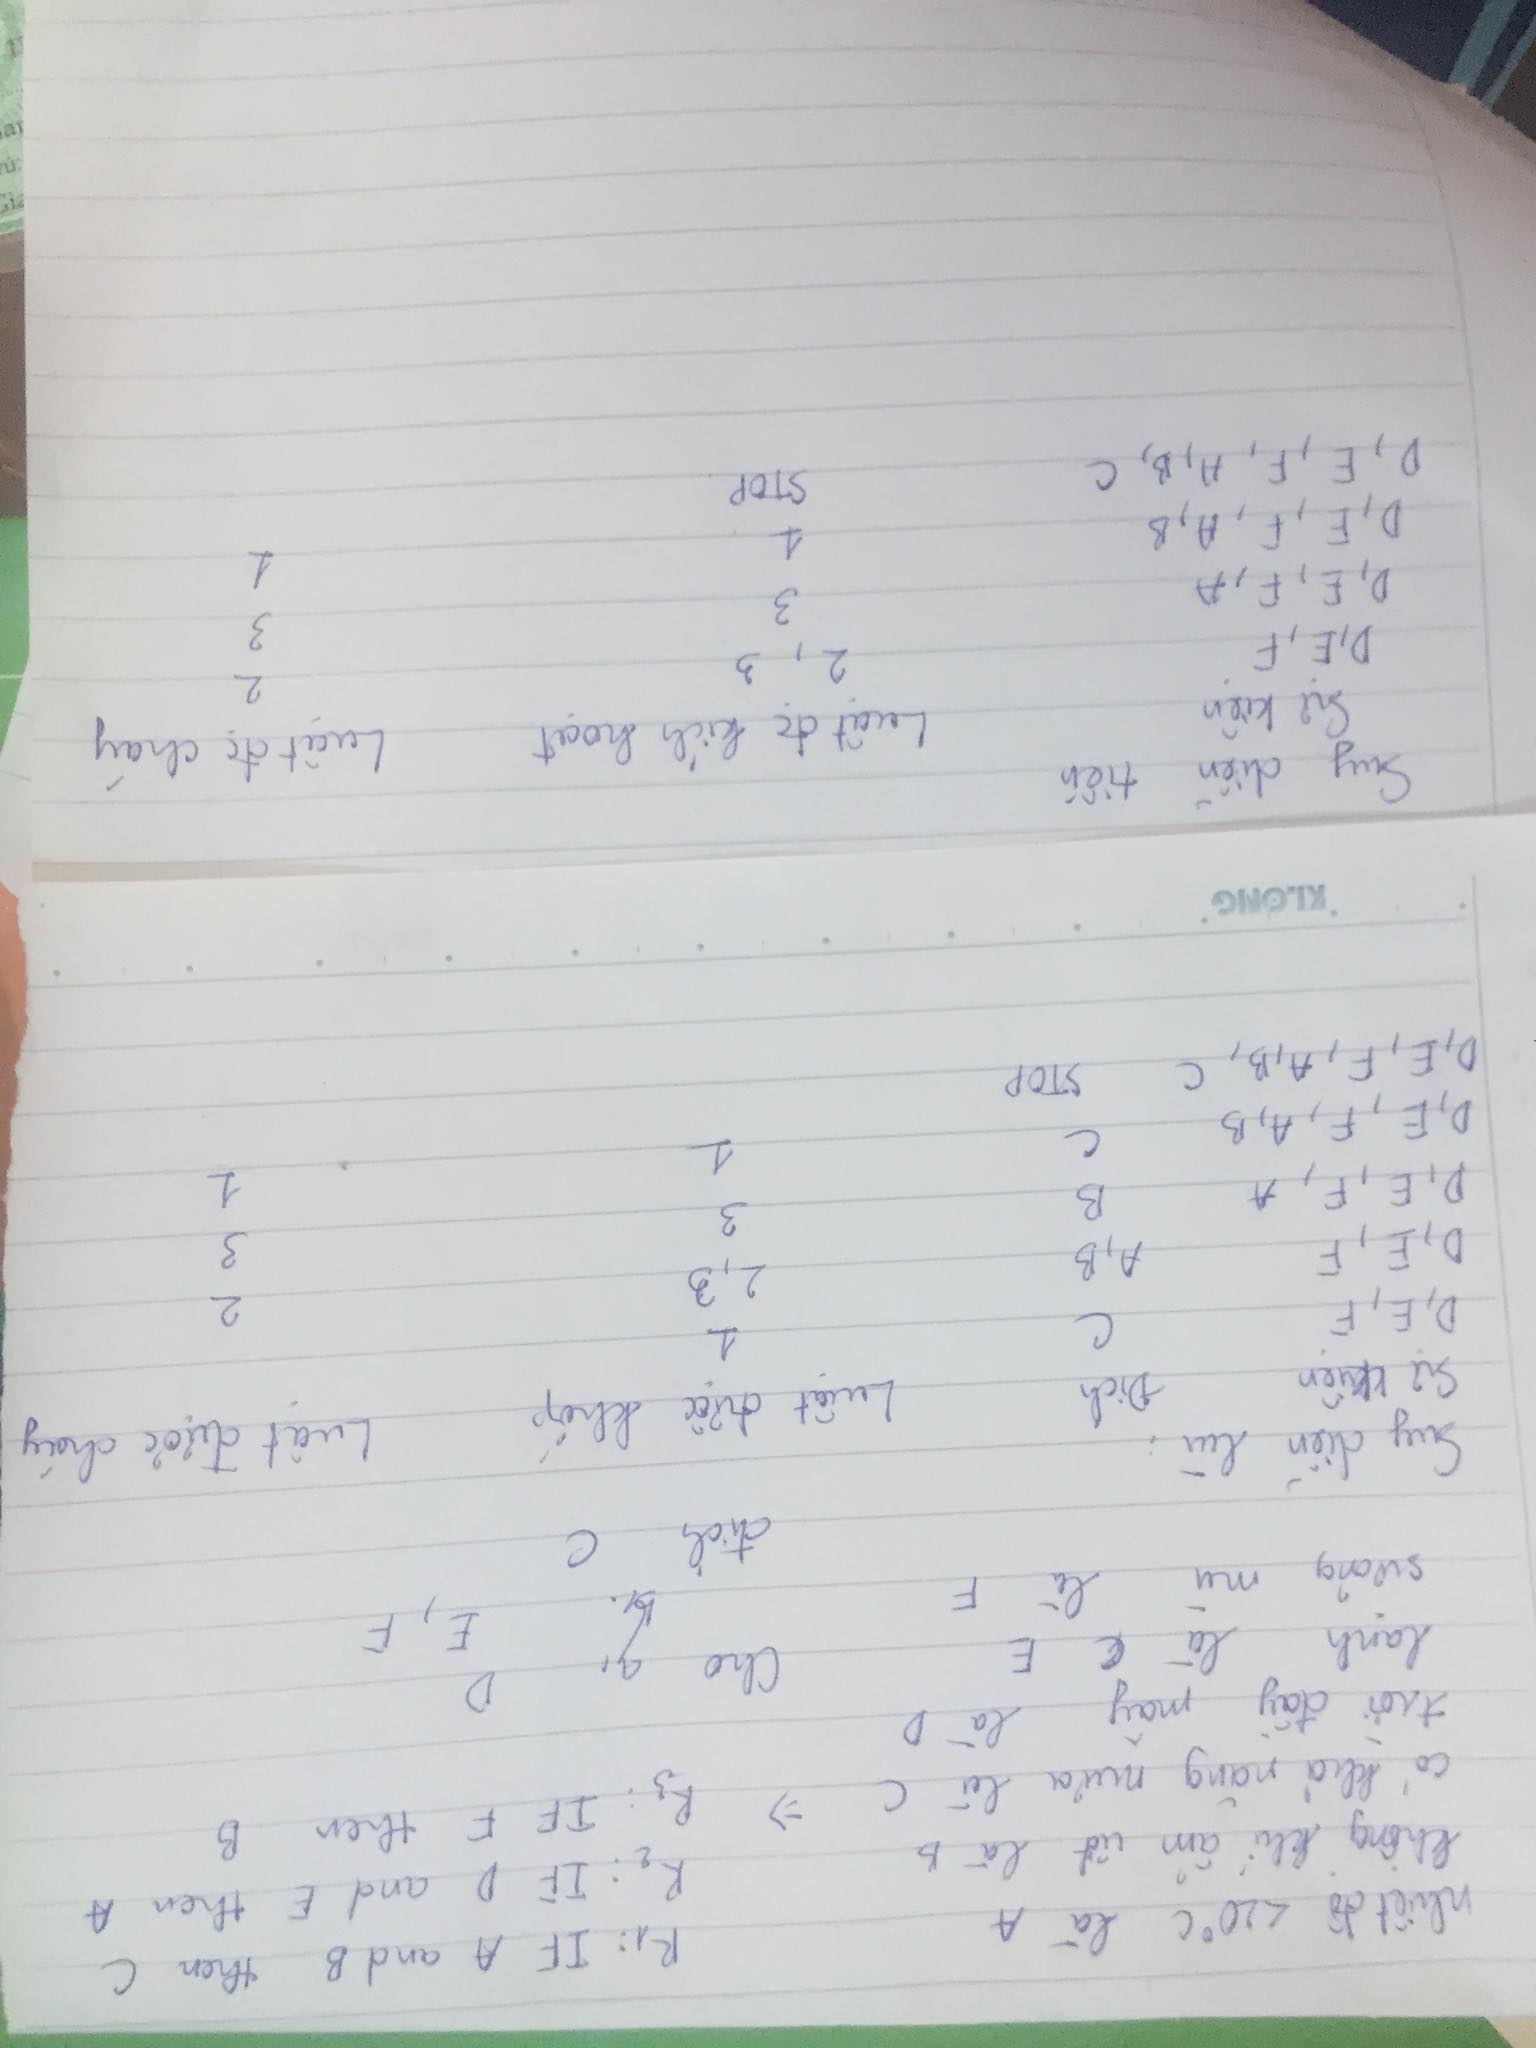 nhiệt độ <20°C là A
không khí ẩm ướt là B
có khả năng mưa là C
trời đầy mây là D
lạnh là E
sương mù là F
=> R1: IF A and B then C
R2: IF D and E then A
R3: IF F then B
Cho a, D
b. E, F
đích C
Suy diễn lùi:
Sự kiện Đích Luật được khớp Luật được cháy
D, E, F C 1
D, E, F A, B 2, 3 2
D, E, F, A B 3 3
D, E, F, A, B C 1 1
D, E, F, A, B, C STOP
KLONG
Suy diễn tiến
Sự kiện Luật đc kích hoạt Luật đc cháy
D, E, F 2, 3 2
D, E, F, A 3 3
D, E, F, A, B 1 1
D, E, F, A, B, C STOP